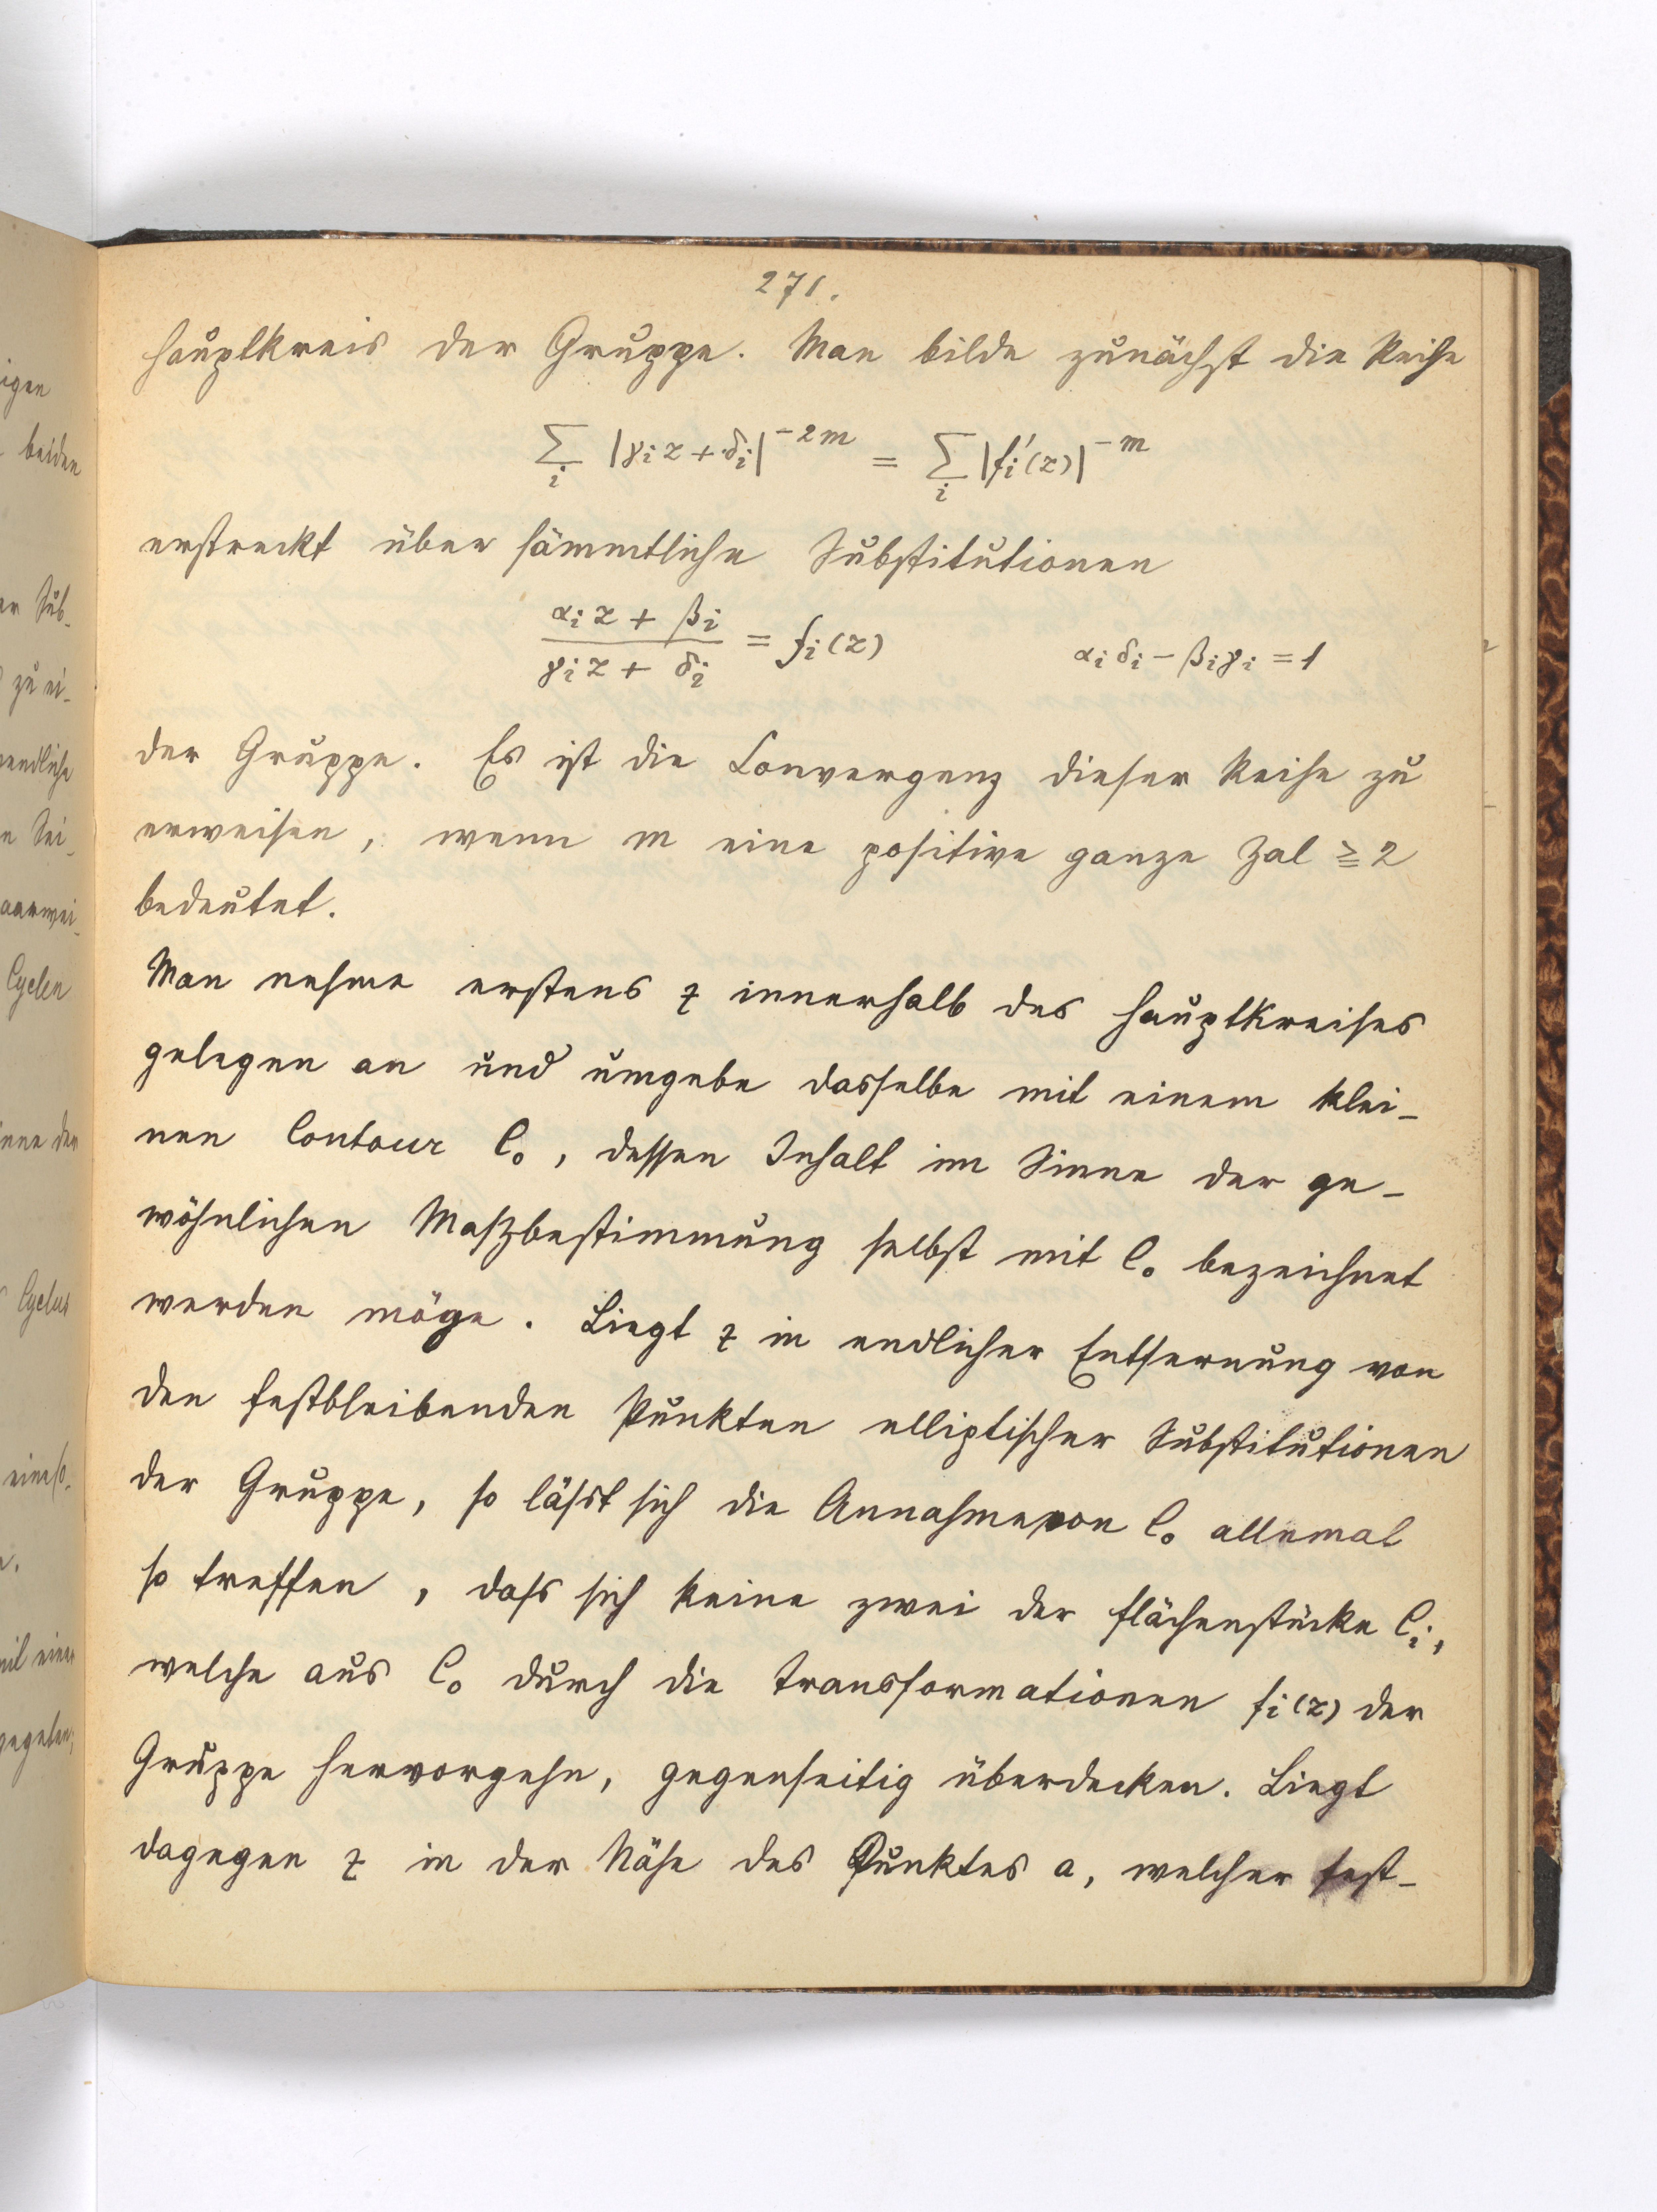 271.
Hauptkreis der Gruppe. Man bilde zunächst die Reihe
∑_i |γ_i z + δ_i|^{-2m} = ∑_i |f_i'(z)|^{-m}
erstreckt über sämmtliche Substitutionen
(α_i z + β_i)/(γ_i z + δ_i) = f_i(z)    α_i δ_i − β_i γ_i = 1
der Gruppe. Es ist die Convergenz dieser Reihe zu
erweisen, wenn m eine positive ganze Zal ≧ 2
bedeutet.
Man nehme erstens z innerhalb des Hauptkreises
gelegen an und umgebe dasselbe mit einem klei-
nen Contour C_0, dessen Inhalt im Sinne der ge-
wöhnlichen Maßbestimmung selbst mit C_0 bezeichnet
werden möge. Liegt z in endlicher Entfernung von
den festbleibenden Punkten elliptischer Substitutionen
der Gruppe, so lässt sich die Annahme von C_0 allemal
so treffen, dass sich keine zwei der Flächenstücke C_i,
welche aus C_0 durch die Transformationen f_i(z) der
Gruppe hervorgehn, gegenseitig überdecken. Liegt
dagegen z in der Nähe des Punktes a, welcher fest-
igen
beiden
er Sub-
zu ei-
endliche
n Sei-
aarwei-
Cyclen
inne der
Cyclus
mit einer
gegeben;